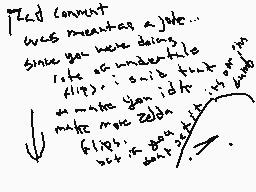 that comment
was meant as a joke...
since you were doing
lots of undertale
flips, i said that
to make you idk
make more zelda
flips.
but if you
dont get it its ok its
dumb